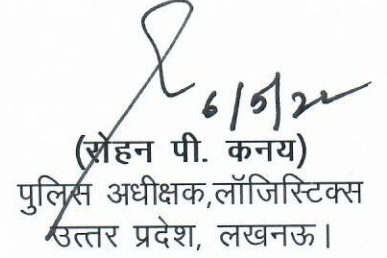 6/5/22
(रोहन पी. कनय)
पुलिस अधीक्षक,लॉजिस्टिक्स
उत्तर प्रदेश, लखनऊ।